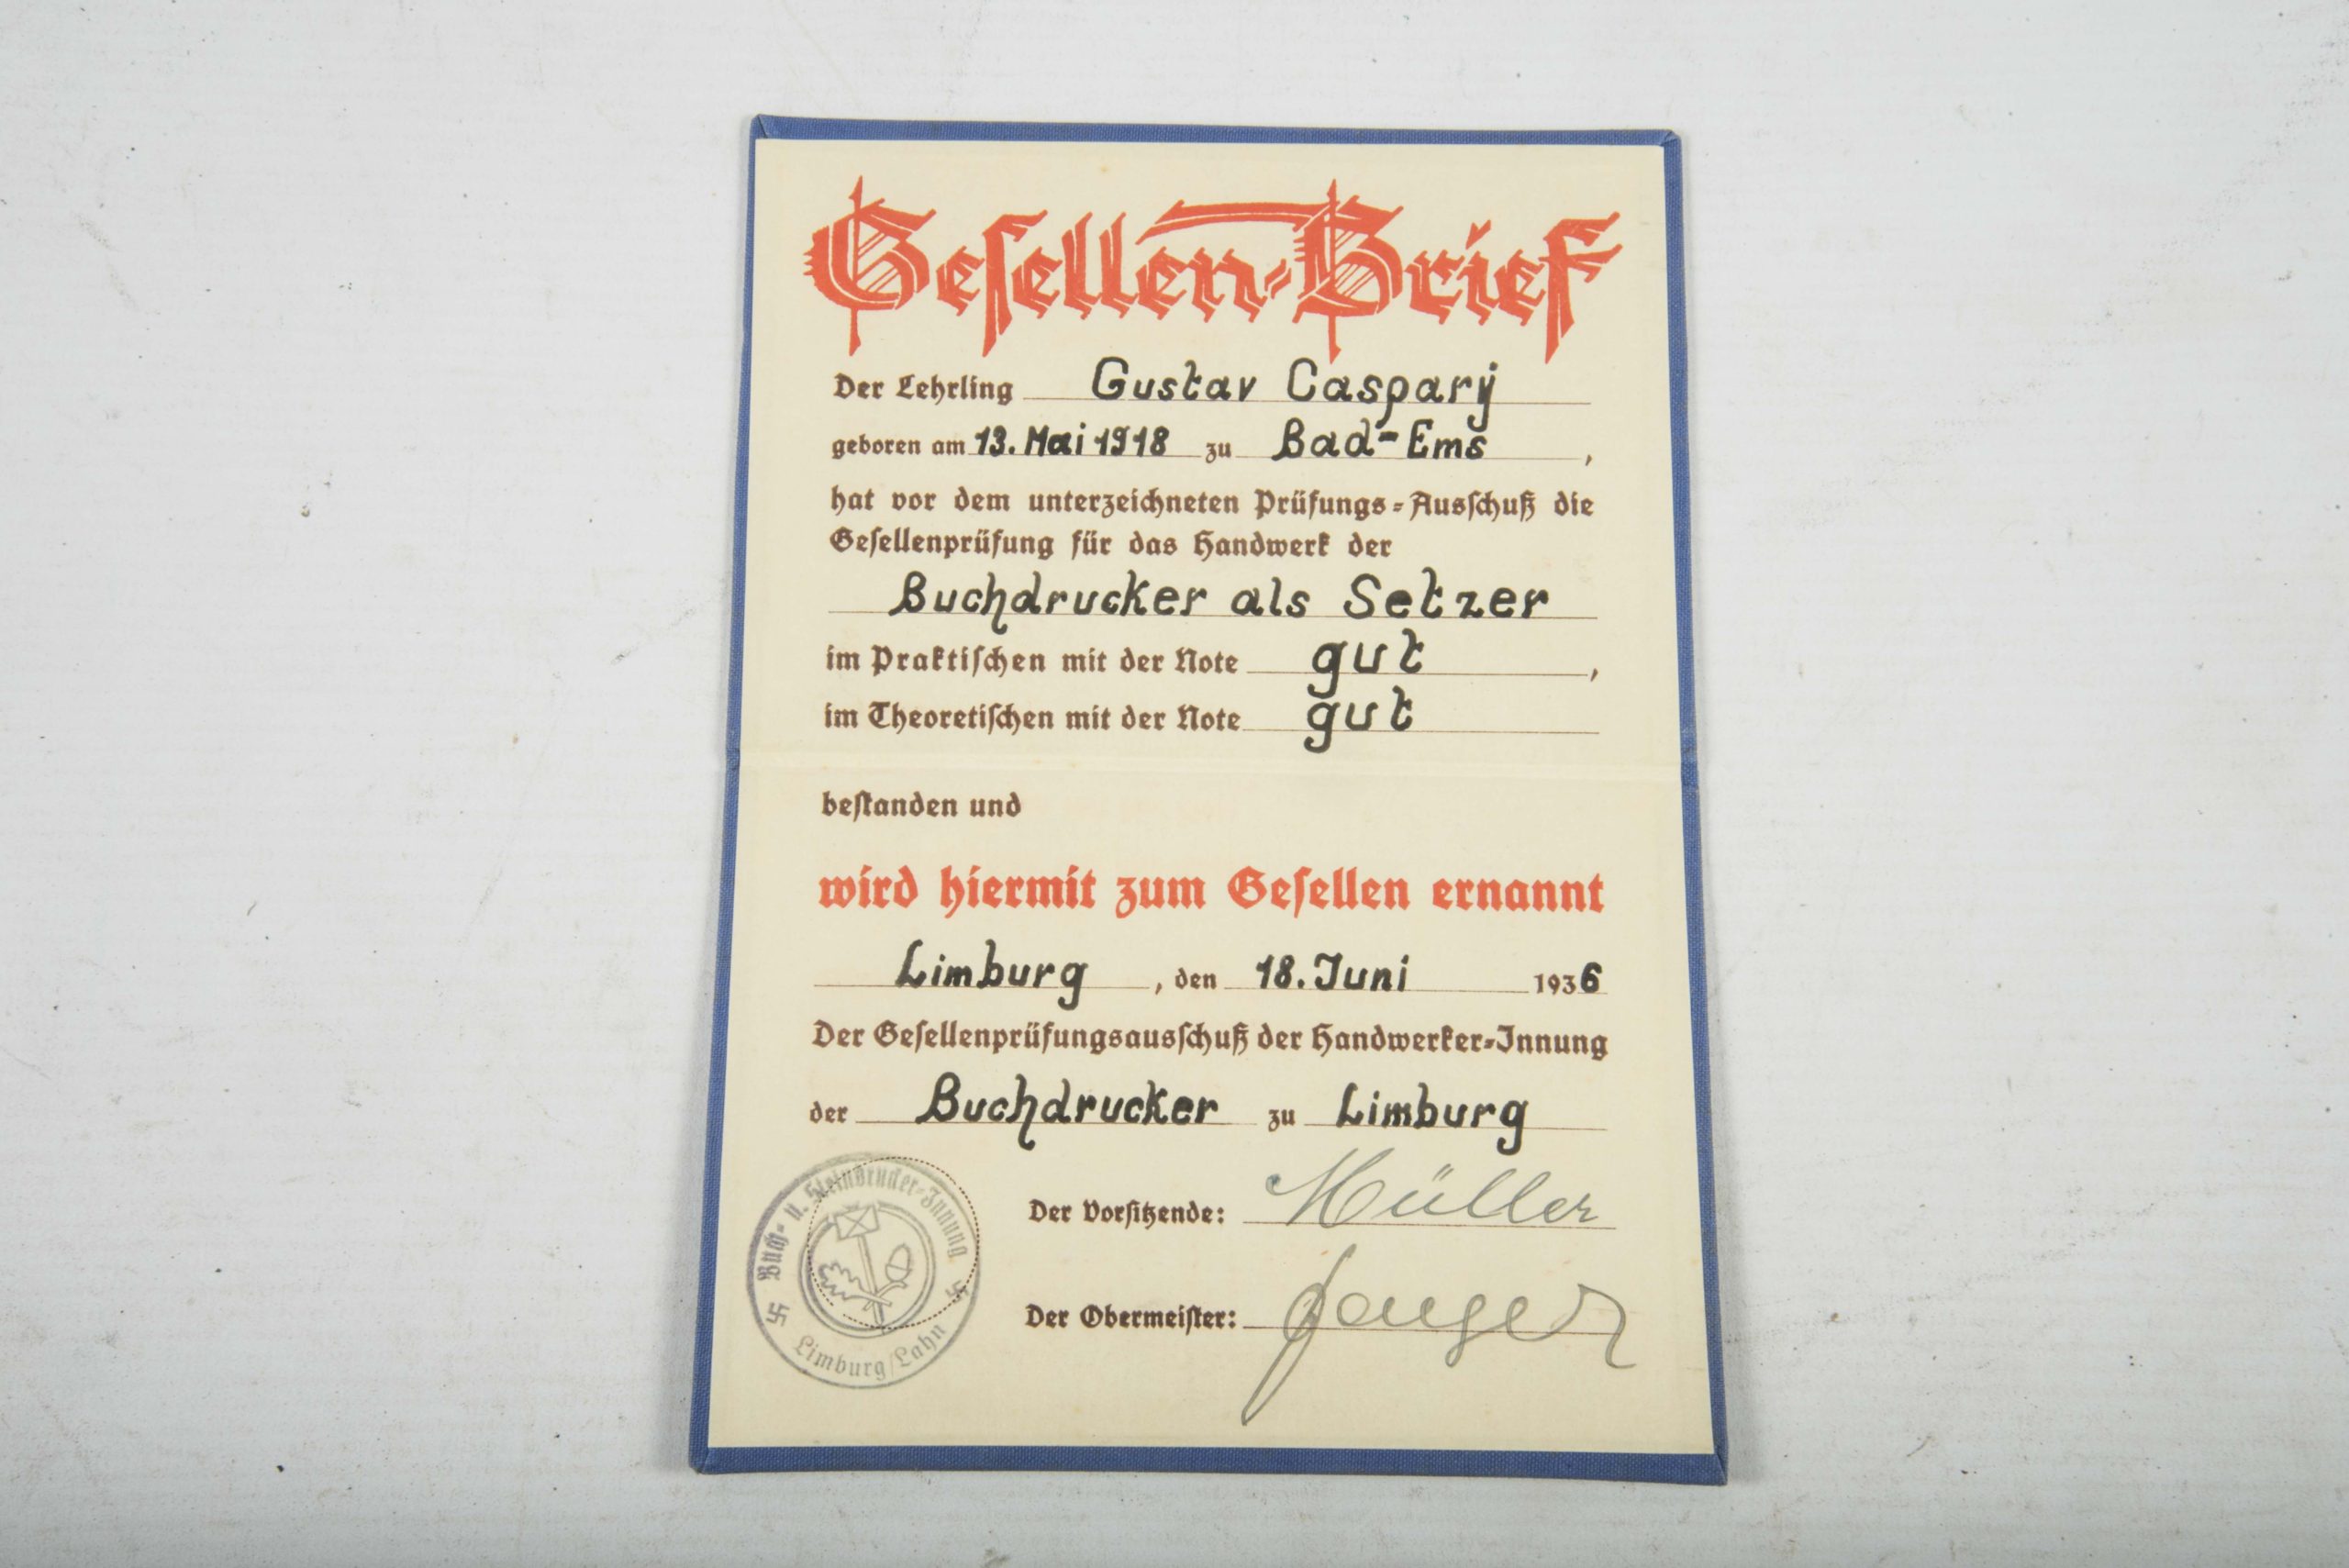 Gesellen-Brief
Der Lehrling Gustav Caspary
geboren am 13. Mai 1918 zu Bad-Ems,
hat vor dem unterzeichneten Prüfungs-Ausschuß die
Gesellenprüfung für das Handwerk der
Buchdrucker als Setzer
im Praktischen mit der Note gut,
im Theoretischen mit der Note gut
bestanden und
wird hiermit zum Gesellen ernannt
Limburg, den 18. Juni 1936
Der Gesellenprüfungsausschuß der Handwerker-Innung
der Buchdrucker zu Limburg
Der Vorsitzende: Müller
Der Obermeister:
Buch- u. Steindrucker-Innung
Limburg/Lahn